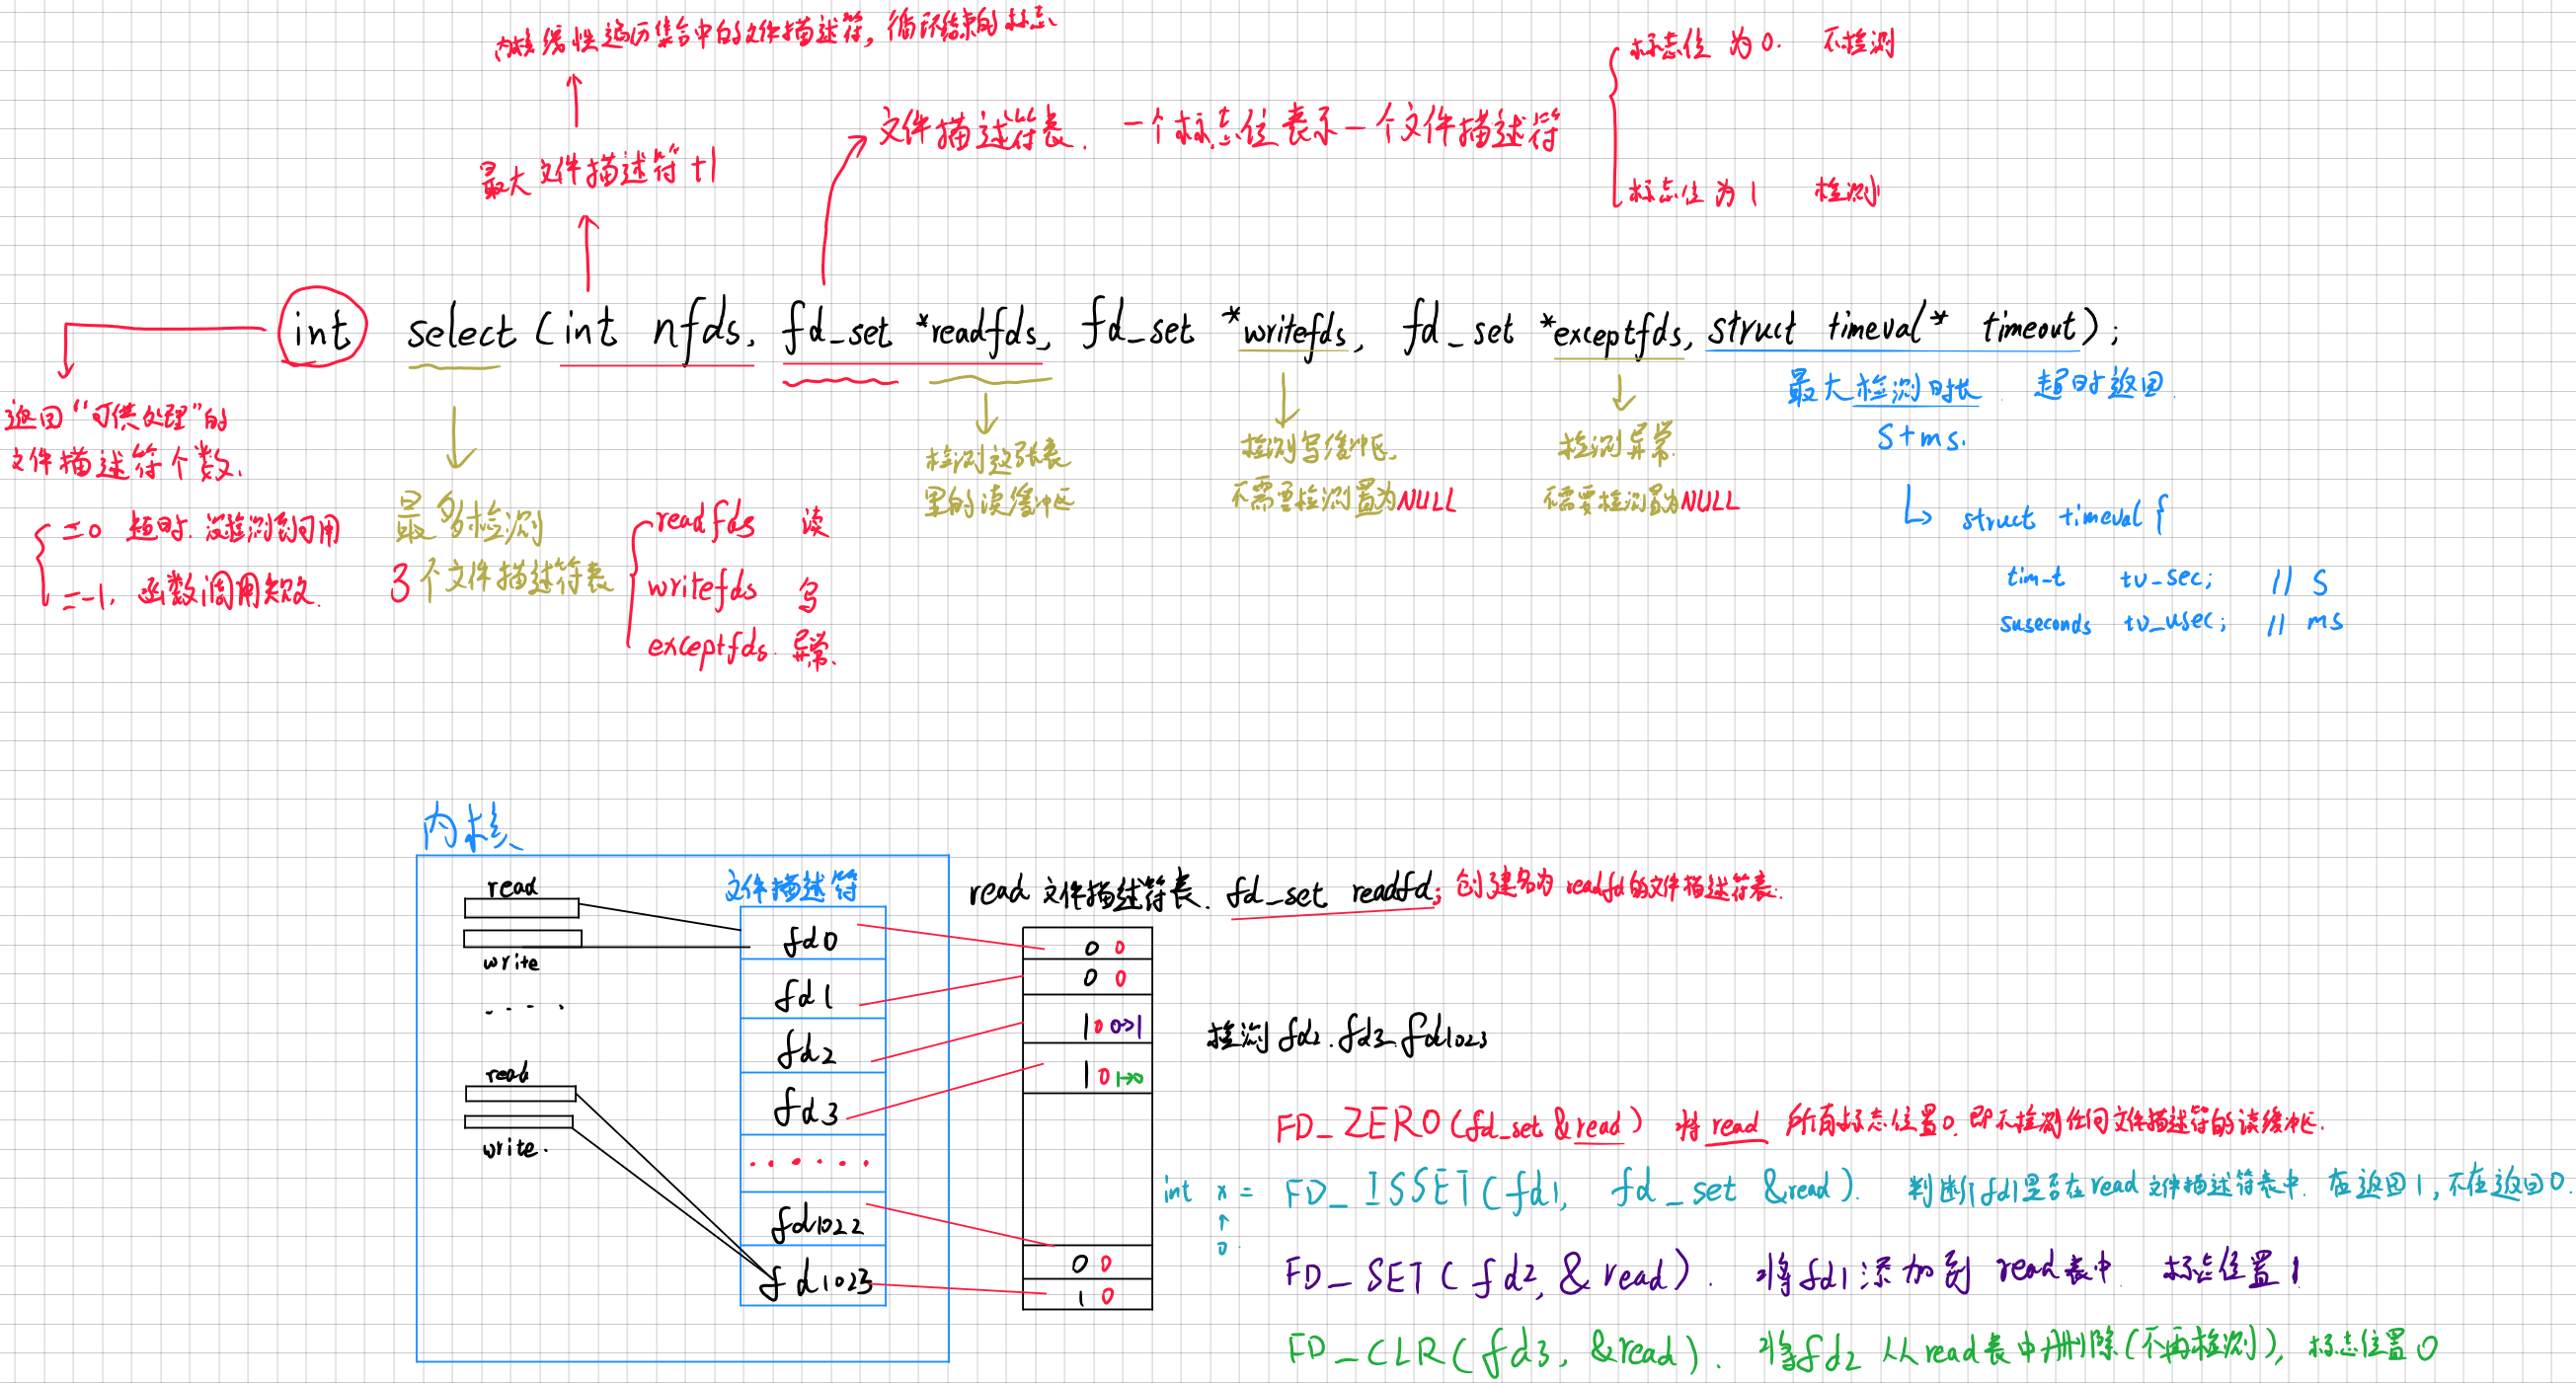 内核线性遍历集合中的文件描述符，循环结束的标志
最大文件描述符+1
文件描述符表. 一个标志位表示一个文件描述符
标志位为0. 不检测
标志位为1 检测
int select (int nfds, fd_set *readfds, fd_set *writefds, fd_set *exceptfds, struct timeval* timeout);
返回“可供处理”的
文件描述符个数.
=0 超时. 没检测到可用
=-1. 函数调用失败.
最多检测
3个文件描述符表
readfds 读
writefds 写
exceptfds. 异常.
检测这张表
里的读缓冲区
检测写缓冲区,
不需要检测置为NULL
检测异常.
不需要检测置为NULL
最大检测时长 超时返回.
s+ms.
struct timeval {
tim_t tv_sec; // s
suseconds tv_usec; // ms
内核
read
write
....
read
write.
文件描述符
fd0
fd1
fd2
fd3
......
fd1022
fd1023
read 文件描述符表. fd_set readfd; 创建名为readfd的文件描述符表.
0 0
0 0
1 0 0->1
1 0 1->0
0 0
1 0
检测 fd2. fd3. fd1023
FD_ZERO(fd_set &read) 将read 所有标志位置0. 即不检测任何文件描述符的读缓冲区.
int x = FD_ISSET(fd1, fd_set &read). 判断fd1是否在read文件描述符表中. 在返回1, 不在返回0.
0
FD_SET(fd2, &read). 将fd1添加到read表中 标志位置1
FD_CLR(fd3, &read). 将fd2从read表中删除(不再检测), 标志位置0